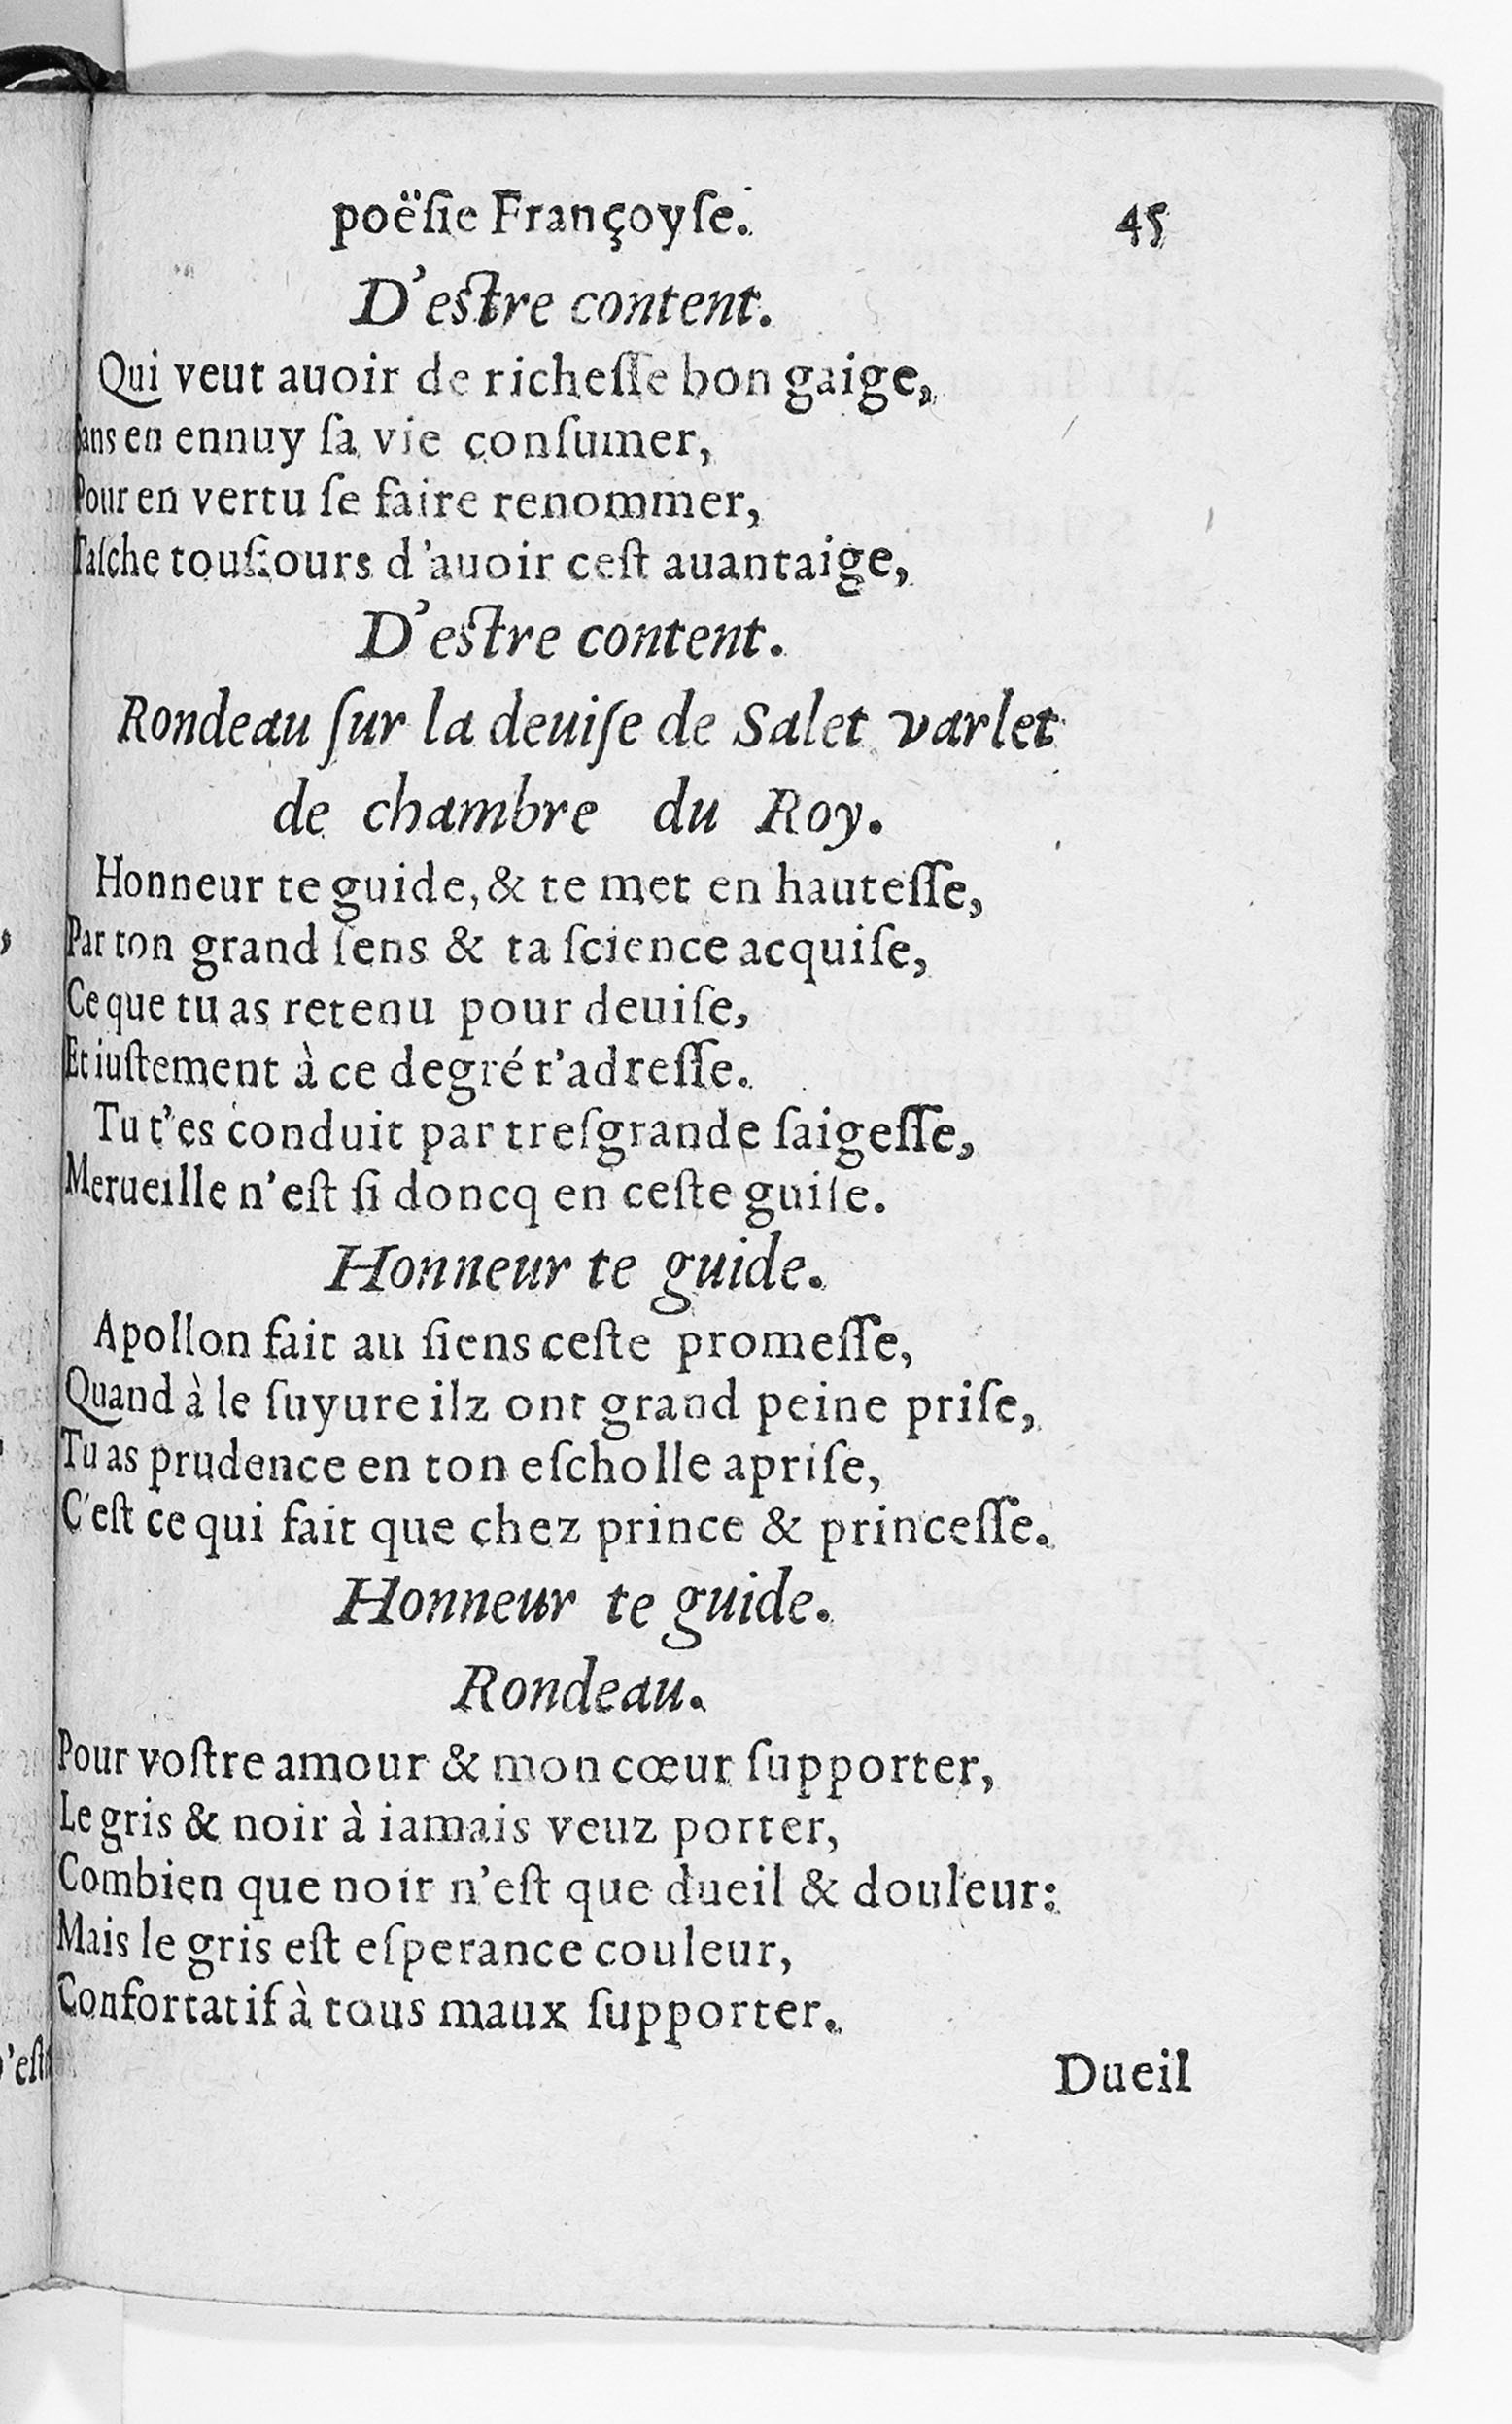 poëſie Françoyſe. 45
D'eſtre content.
Qui veut auoir de richeſſe bon gaige,
ſans en ennuy ſa vie conſumer,
Pour en vertu ſe faire renommer,
Taſche touſiours d'auoir ceſt auantaige,
D'eſtre content.
Rondeau ſur la deuiſe de Salet varlet
de chambre du Roy.
Honneur te guide, & te met en hauteſſe,
Par ton grand ſens & ta ſcience acquiſe,
Ce que tu as retenu pour deuiſe,
Et iuſtement à ce degré t'adreſſe.
Tu t'es conduit par treſgrande ſaigeſſe,
Merueille n'eſt ſi doncq en ceſte guiſe.
Honneur te guide.
Apollon fait au ſiens ceſte promeſſe,
Quand à le ſuyure ilz ont grand peine priſe,
Tu as prudence en ton eſcholle apriſe,
C'eſt ce qui fait que chez prince & princeſſe.
Honneur te guide.
Rondeau.
Pour voſtre amour & mon cœur ſupporter,
Le gris & noir à iamais veuz porter,
Combien que noir n'eſt que dueil & douleur:
Mais le gris eſt eſperance couleur,
Confortatif à tous maux ſupporter.
Dueil